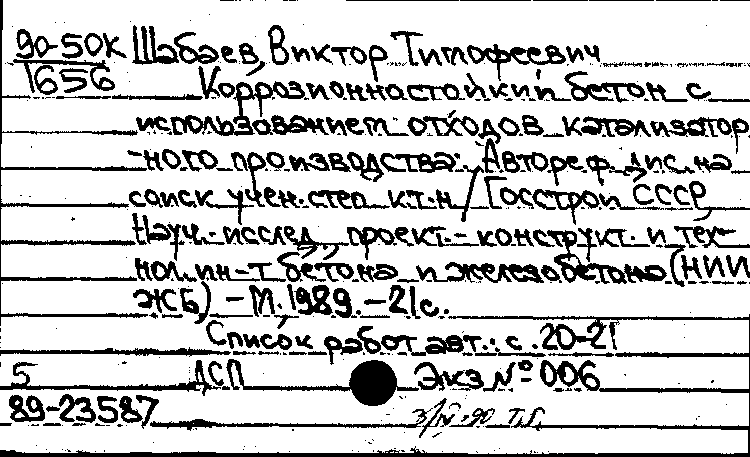 90-50К Шабаев, Виктор Тимофеевич
1656 Коррозионностойкий бетон с
использованием отходов катализатор-
ного производства: Автореф. дис. на
соиск. учен. степ. к.т.н / Госстрой СССР,
Науч.-исслед., проект.-конструкт. и тех-
нол. ин-т бетона и железобетона (НИИ
ЖБ) - М. 1989. - 21 с.
Список работ авт.: с. 20-21
5 ДСП Экз № 006
89-23587 3/IV-90 Т.Г.